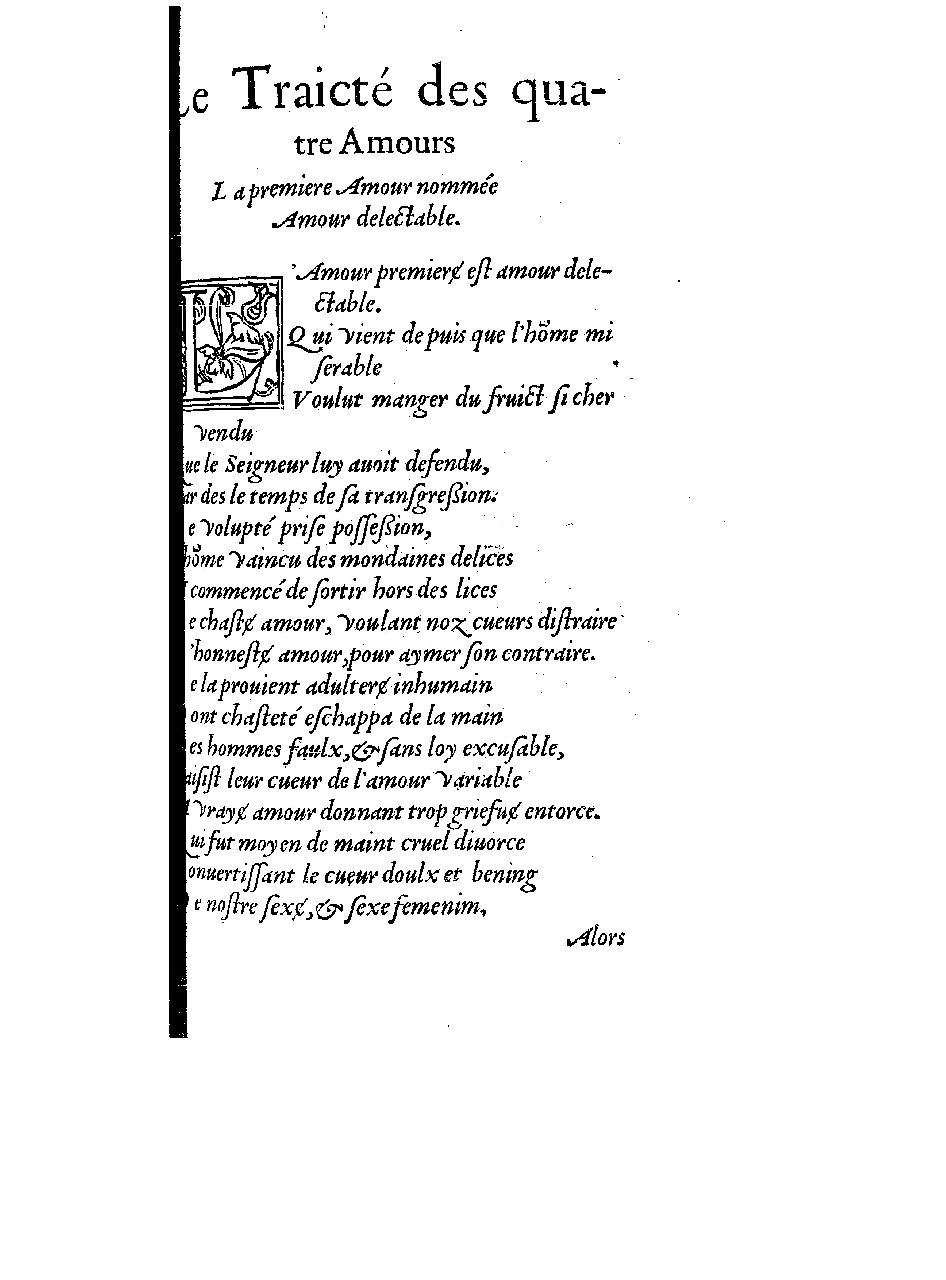 Le Traicté des qua-
tre Amours
La premiere Amour nommée
Amour delectable.
L'Amour premierɇ eſt amour dele-
ctable.
Qui vient depuis que l'hõme mi
ſerable
Voulut manger du fruict ſi cher
vendu
ue le Seigneur luy auoit defendu,
ar des le temps de ſa tranſgreßion.
e volupté priſe poſſeßion,
hõme vaincu des mondaines delices
commencé de ſortir hors des lices
e chaſtɇ amour, voulant noz cueurs diſtraire
'honneſtɇ amour, pour aymer ſon contraire.
e la prouient adulterɇ inhumain
ont chaſteté eſchappa de la main
es hommes faulx, & ſans loy excuſable,
aiſiſt leur cueur de l'amour variable
vrayɇ amour donnant trop griefuɇ entorce.
ui fut moyen de maint cruel diuorce
onuertiſſant le cueur doulx et bening
e noſtre ſexɇ, & ſexe femenim,
Alors